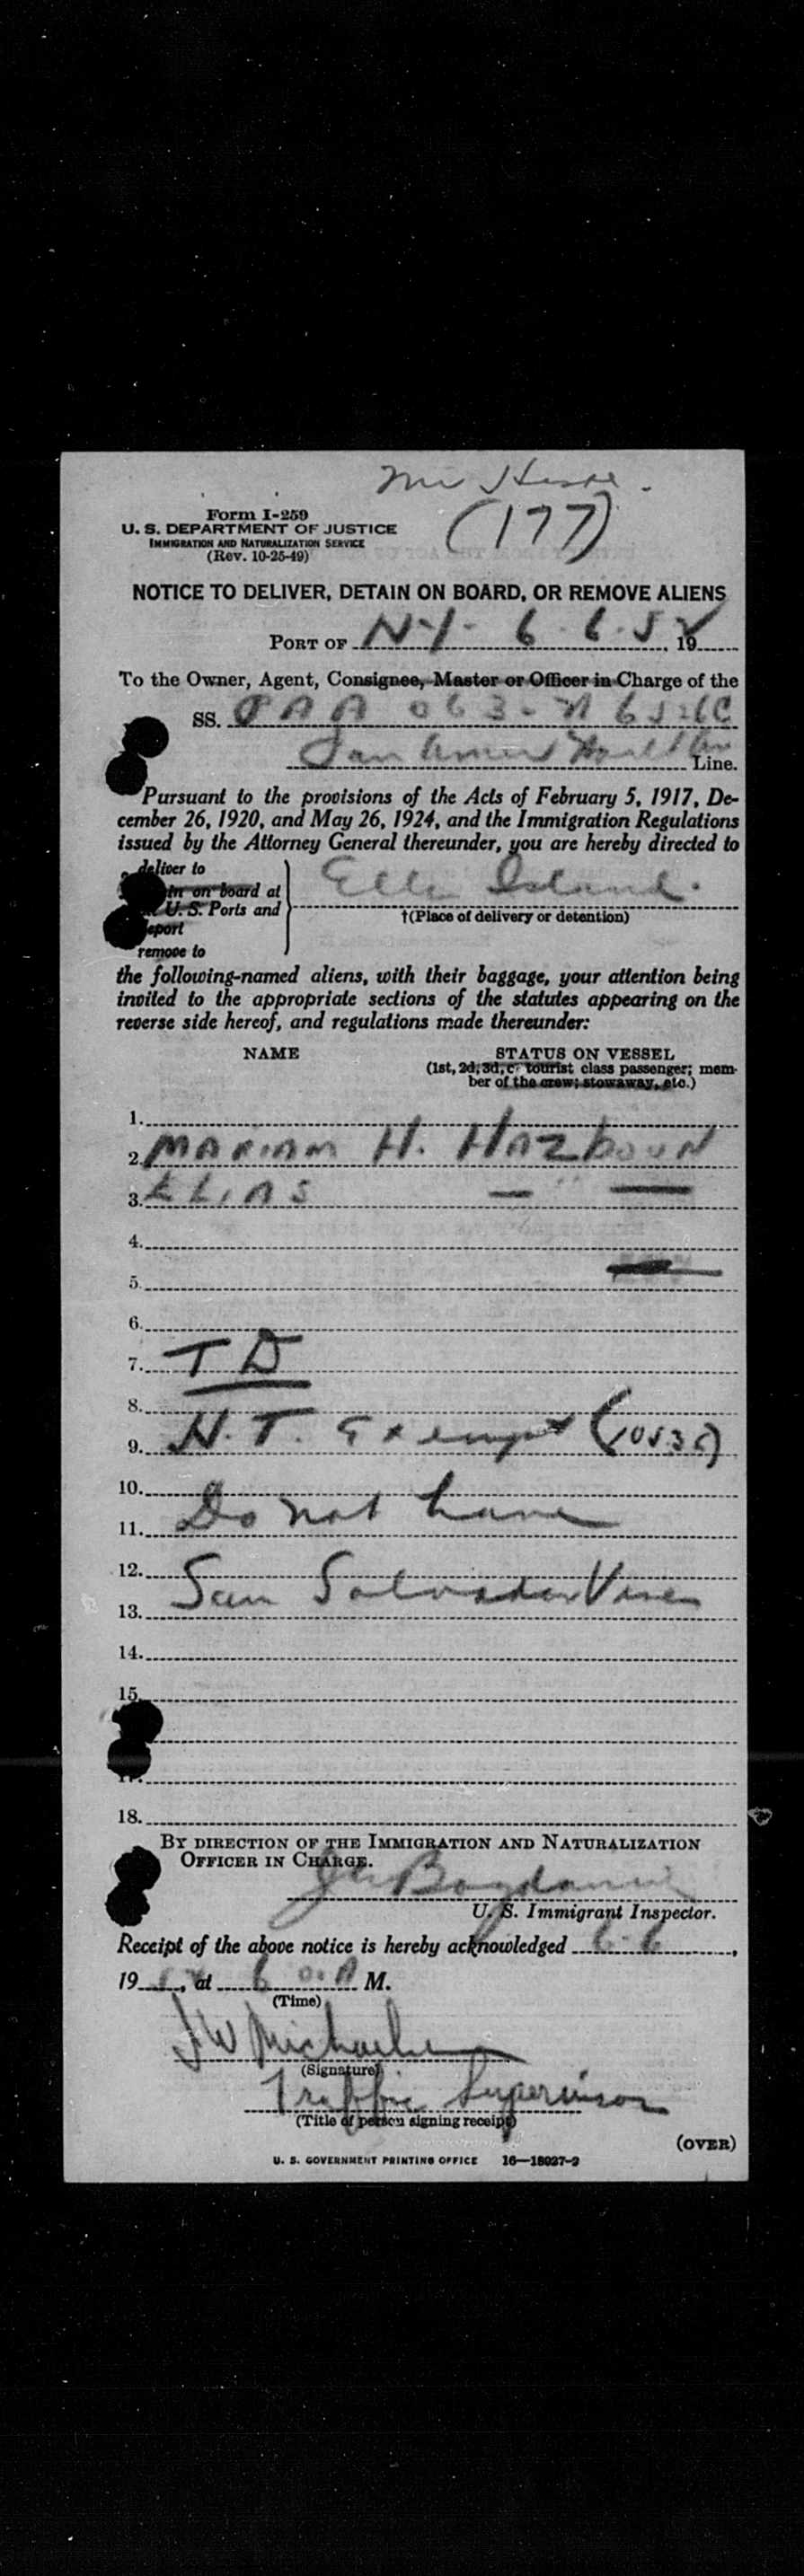 Mr
(177)
Form I-259
U. S. DEPARTMENT OF JUSTICE
IMMIGRATION AND NATURALIZATION SERVICE
(Rev. 10-25-49)
NOTICE TO DELIVER, DETAIN ON BOARD, OR REMOVE ALIENS
PORT OF N.Y. 6-6-52, 19
To the Owner, Agent, Consignee, Master or Officer in Charge of the
SS. PAA 063-N
Line.
Pursuant to the provisions of the Acts of February 5, 1917, De-
cember 26, 1920, and May 26, 1924, and the Immigration Regulations
issued by the Attorney General thereunder, you are hereby directed to
deliver to
on board at Island.
U. S. Ports and
†(Place of delivery or detention)
remove to
the following-named aliens, with their baggage, your attention being
invited to the appropriate sections of the statutes appearing on the
reverse side hereof, and regulations made thereunder:
NAME STATUS ON VESSEL
(1st, 2d, 3d, or tourist class passenger; mem-
ber of the crew; stowaway, etc.)
1.
2. MARIAM H. HAZBOUN
3. ELIAS — " —
4.
5.
6.
7. T D
8.
9. H.T. Exempt
10.
11. Do not have
12.
13. San Salvador Visa
14.
15.
17.
18.
BY DIRECTION OF THE IMMIGRATION AND NATURALIZATION
OFFICER IN CHARGE.
U. S. Immigrant Inspector.
Receipt of the above notice is hereby acknowledged 6-6,
19 52, at 6 A M.
(Time)
J W
(Signature)
Traffic Supervisor
(Title of person signing receipt)
(OVER)
U. S. GOVERNMENT PRINTING OFFICE 16—18027-2